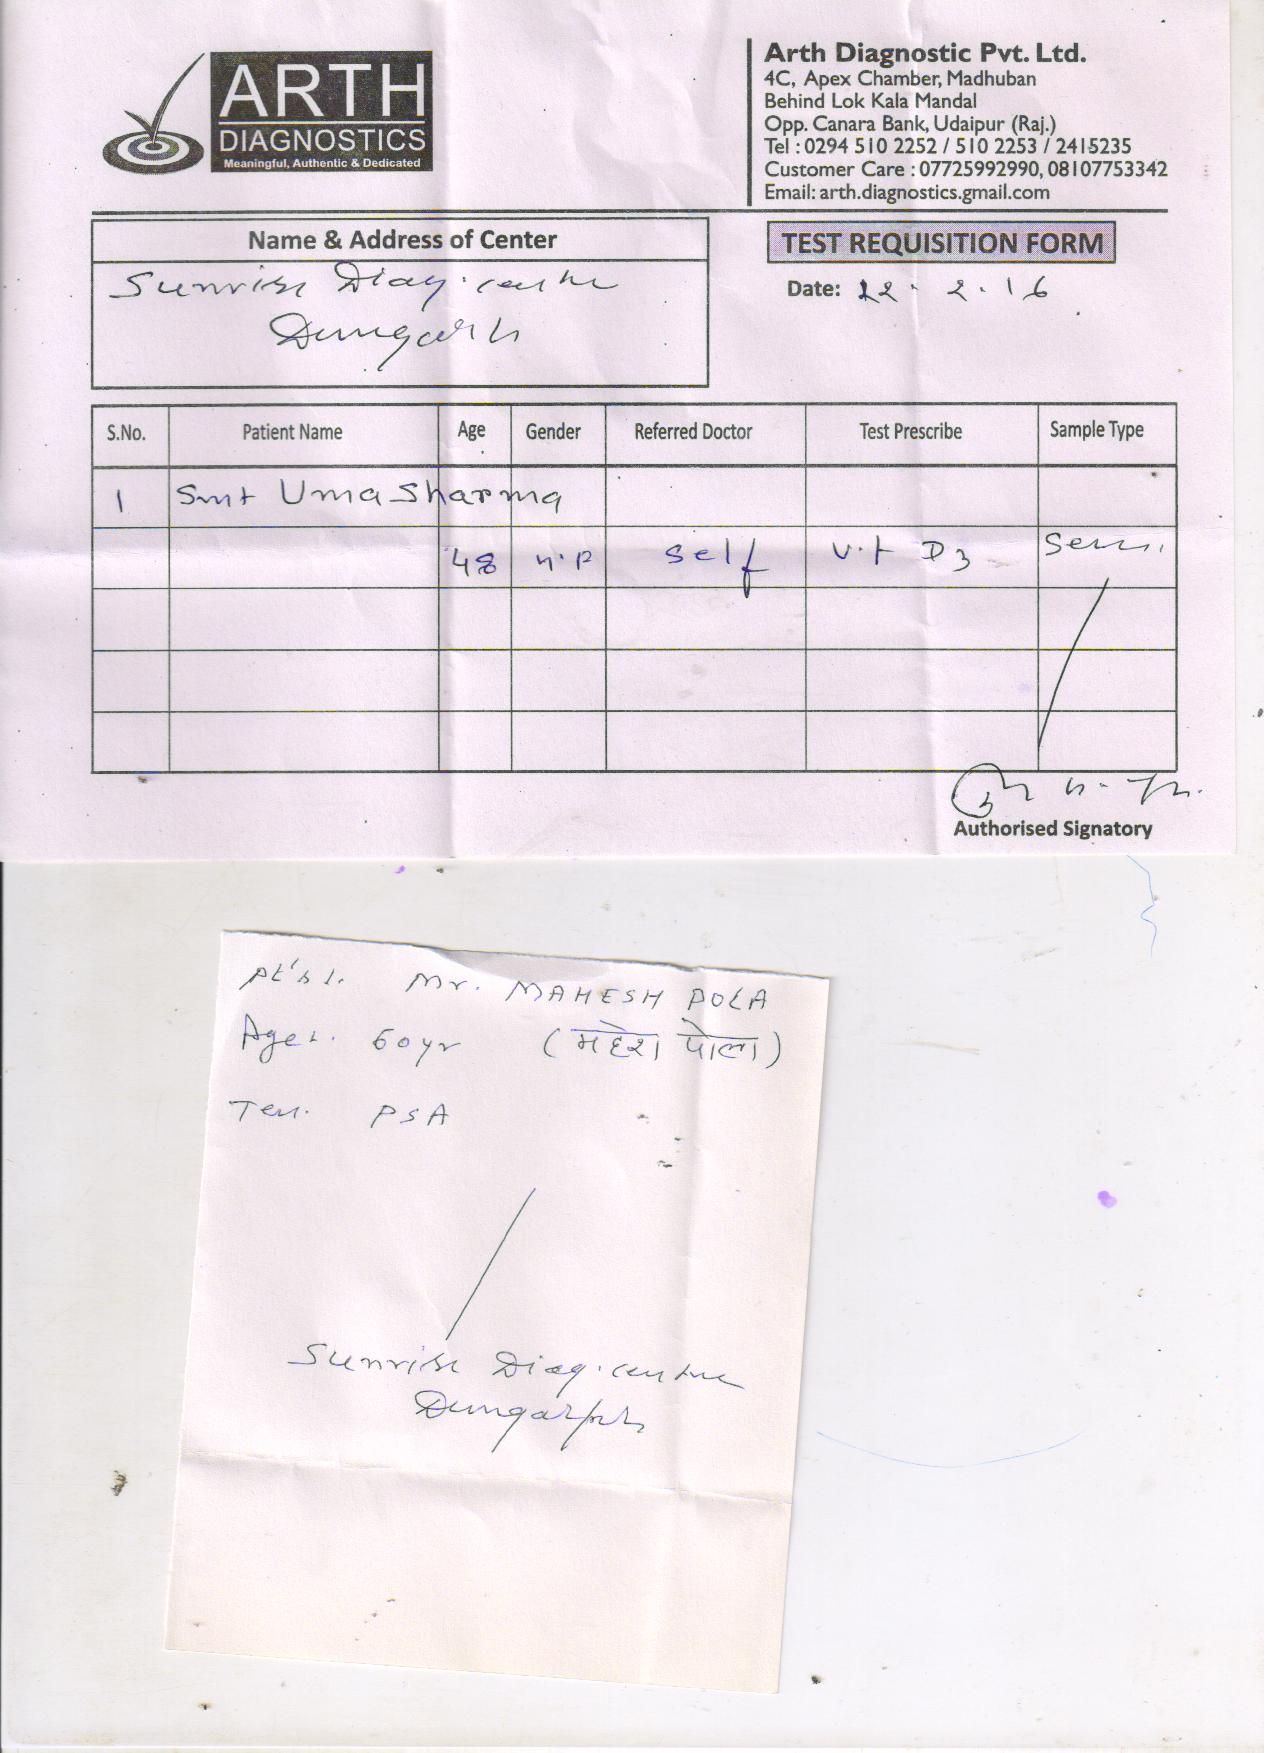 ARTH
DIAGNOSTICS
Meaningful, Authentic & Dedicated
Arth Diagnostic Pvt. Ltd.
4C, Apex Chamber, Madhuban
Behind Lok Kala Mandal
Opp. Canara Bank, Udaipur (Raj.)
Tel : 0294 510 2252 / 510 2253 / 2415235
Customer Care : 07725992990, 08107753342
Email: arth.diagnostics.gmail.com
Name & Address of Center
Sunrise Diag. centre
TEST REQUISITION FORM
Date: 22. 2. 16
S.No. Patient Name Age Gender Referred Doctor Test Prescribe Sample Type
1 Smt Uma Sharma
48 self Vit D3
Authorised Signatory
Mr. MAHESH POLA
Age 60yr (महेश पोला)
PSA
Sunrise Diag. centre
Dungarpur